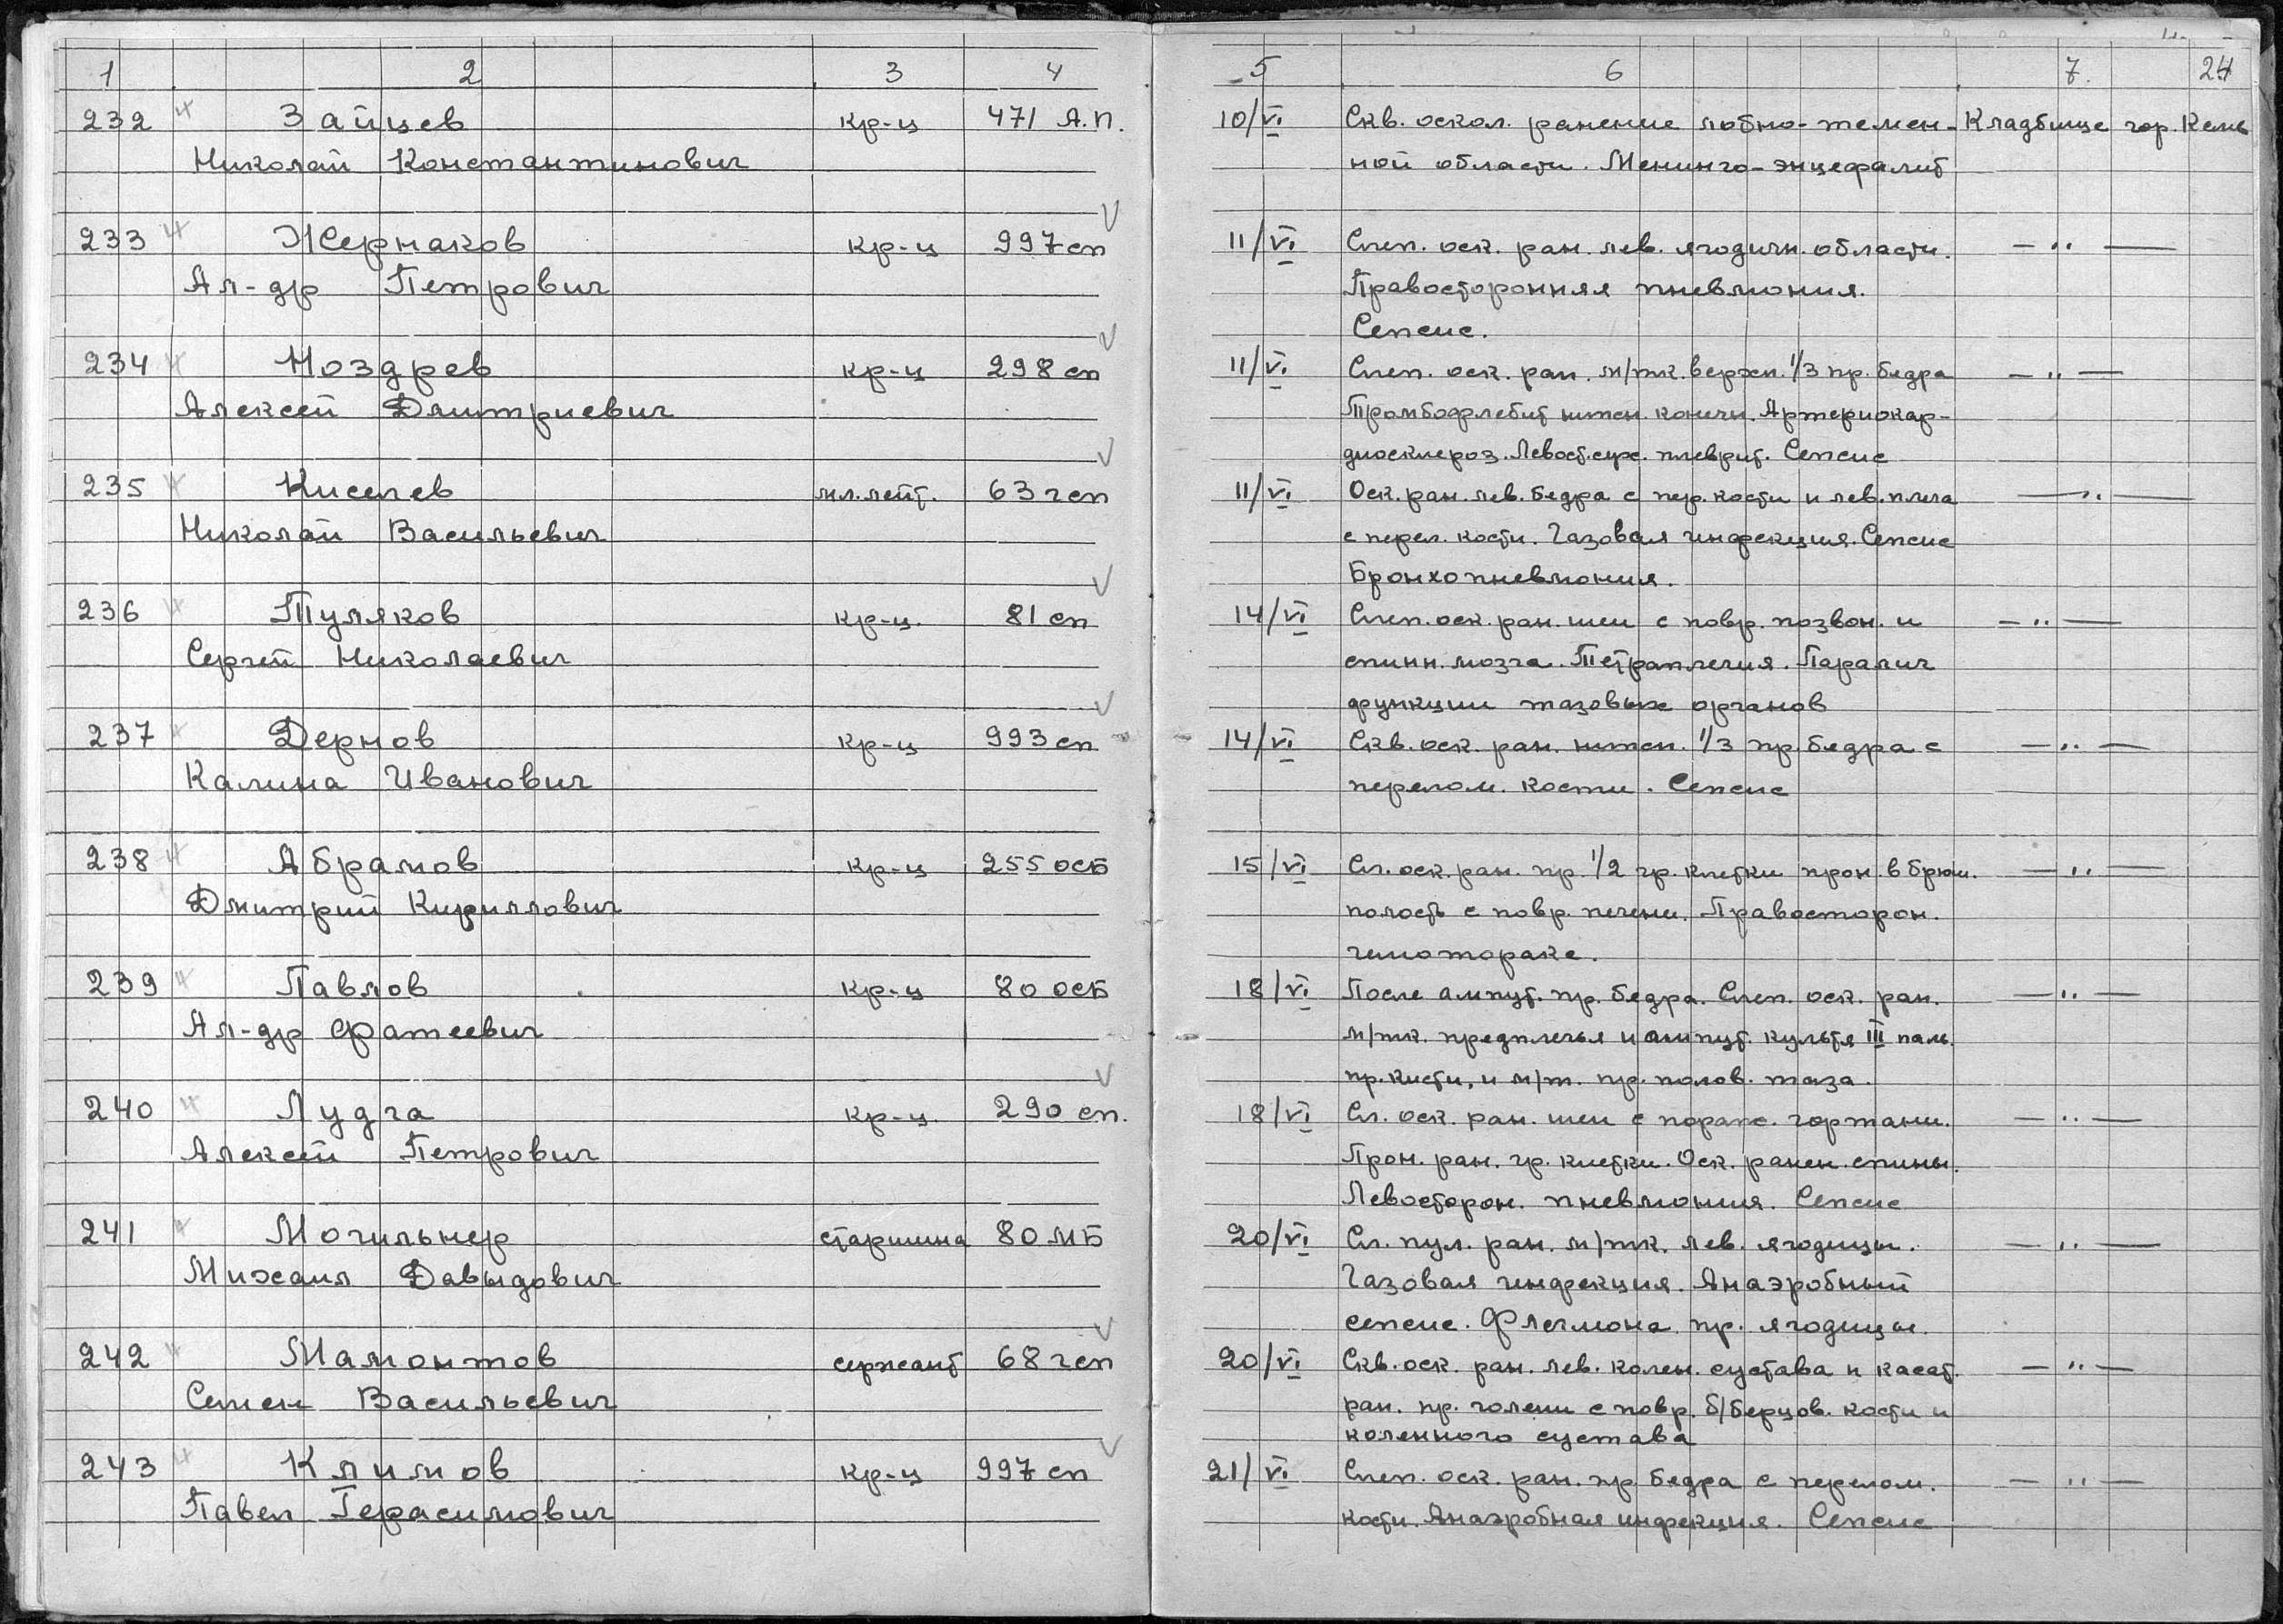 1 2 3 4 5 6 7. 24
232 Зайцев кр-ц 471 А.П. 10/VI Скв. оскол. ранение лобно-темен- Кладбище гор. Кемь
Николай Константинович ной области. Менинго-энцефалит
233 Жернаков кр-ц 997 сп 11/VI Слеп. оск. ран. лев. ягодичн. области. — " —
Ал-др Петрович Правосторонняя пневмония.
Сепсис.
234 Ноздрев кр-ц 298 сп 11/VI Слеп. оск. ран. м/тк. верхн. 1/3 пр. бедра — " —
Алексей Дмитриевич Тромбофлебит нижн. конечн. Артериокар-
диосклероз. Левост. сух. плеврит. Сепсис
235 Киселев мл. лейт. 63 гсп 11/VI Оск. ран. лев. бедра с пер. кости и лев. плеча — " —
Николай Васильевич с перел. кости. Газовая инфекция. Сепсис
Бронхопневмония.
236 Туляков кр-ц. 81 сп 14/VI Слеп. оск. ран. шеи с повр. позвон. и — " —
Сергей Николаевич спинн. мозга. Тетраплегия. Паралич
функции тазовых органов
237 Дернов кр-ц 993 сп 14/VI Скв. оск. ран. нижн. 1/3 пр. бедра с — " —
Калина Иванович перелом. кости. Сепсис
238 Абрамов кр-ц 255 осб 15/VI Сл. оск. ран. пр. 1/2 гр. клетки прон. в брюш. — " —
Дмитрий Кириллович полость с повр. печени. Правосторон.
гемоторакс.
239 Павлов кр-ц 80 осб 18/VI После ампут. пр. бедра. Слеп. оск. ран. — " —
Ал-др Фатеевич м/тк. предплечья и ампут. культя III паль.
пр. кисти, и м/т. пр. полов. таза.
240 Лудга кр-ц. 290 сп. 18/VI Сл. оск. ран. шеи с пораж. гортани. — " —
Алексей Петрович Прон. ран. гр. клетки. Оск. ранен. спины.
Левосторон. пневмония. Сепсис
241 Могильнер старшина 80 МБ 20/VI Сл. пул. ран. м/тк. лев. ягодицы. — " —
Михаил Давыдович Газовая инфекция. Анаэробный
сепсис. Флегмона пр. ягодицы.
242 Мамонтов сержант 68 гсп 20/VI Скв. оск. ран. лев. колен. сустава и касат. — " —
Семен Васильевич ран. пр. голени с повр. б/берцов. кости и
коленного сустава
243 Климов кр-ц 997 сп 21/VI Слеп. оск. ран. пр бедра с перелом. — " —
Павел Герасимович кости. Анаэробная инфекция. Сепсис